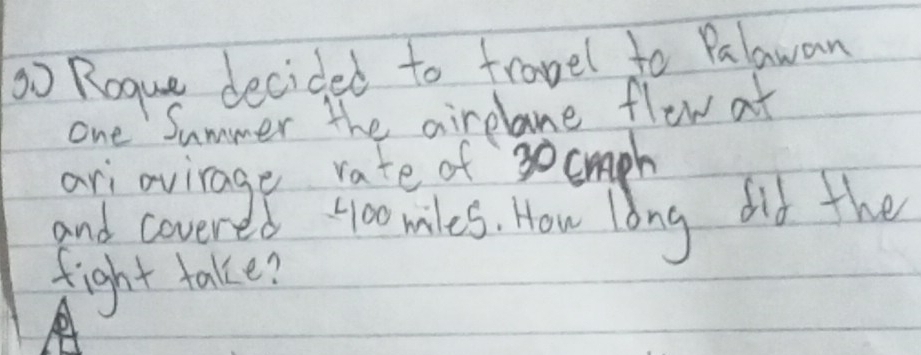 3.) Roque decided to travel to Palawan
one Summer the airplane flew at
ari avirage rate of 30 cmph
and covered 400 miles. How long did the
fight take?
A